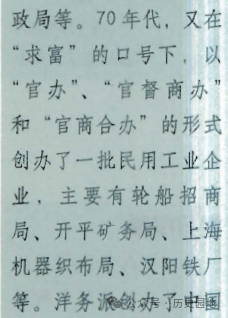 政局等。70年代，又在
“求富”的口号下，以
“官办”、“官督商办”
和“官商合办”的形式
创办了一批民用工业企
业，主要有轮船招商
局、开平矿务局、上海
机器织布局、汉阳铁厂
等。洋务派创办了中国
公众号·历史园地